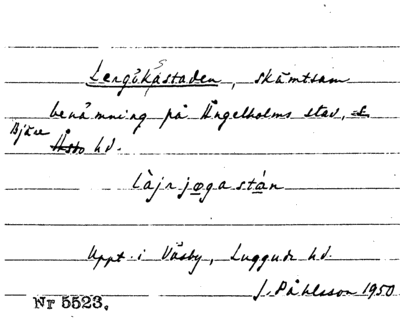 Lergökastaden, skämtsam
benämning på Ängelholms stad,
Bjäre hd.
làjrjøgastán
Uppt. i Väsby, Luggude hd.
J. Påhlsson 1950
Nr 5523.